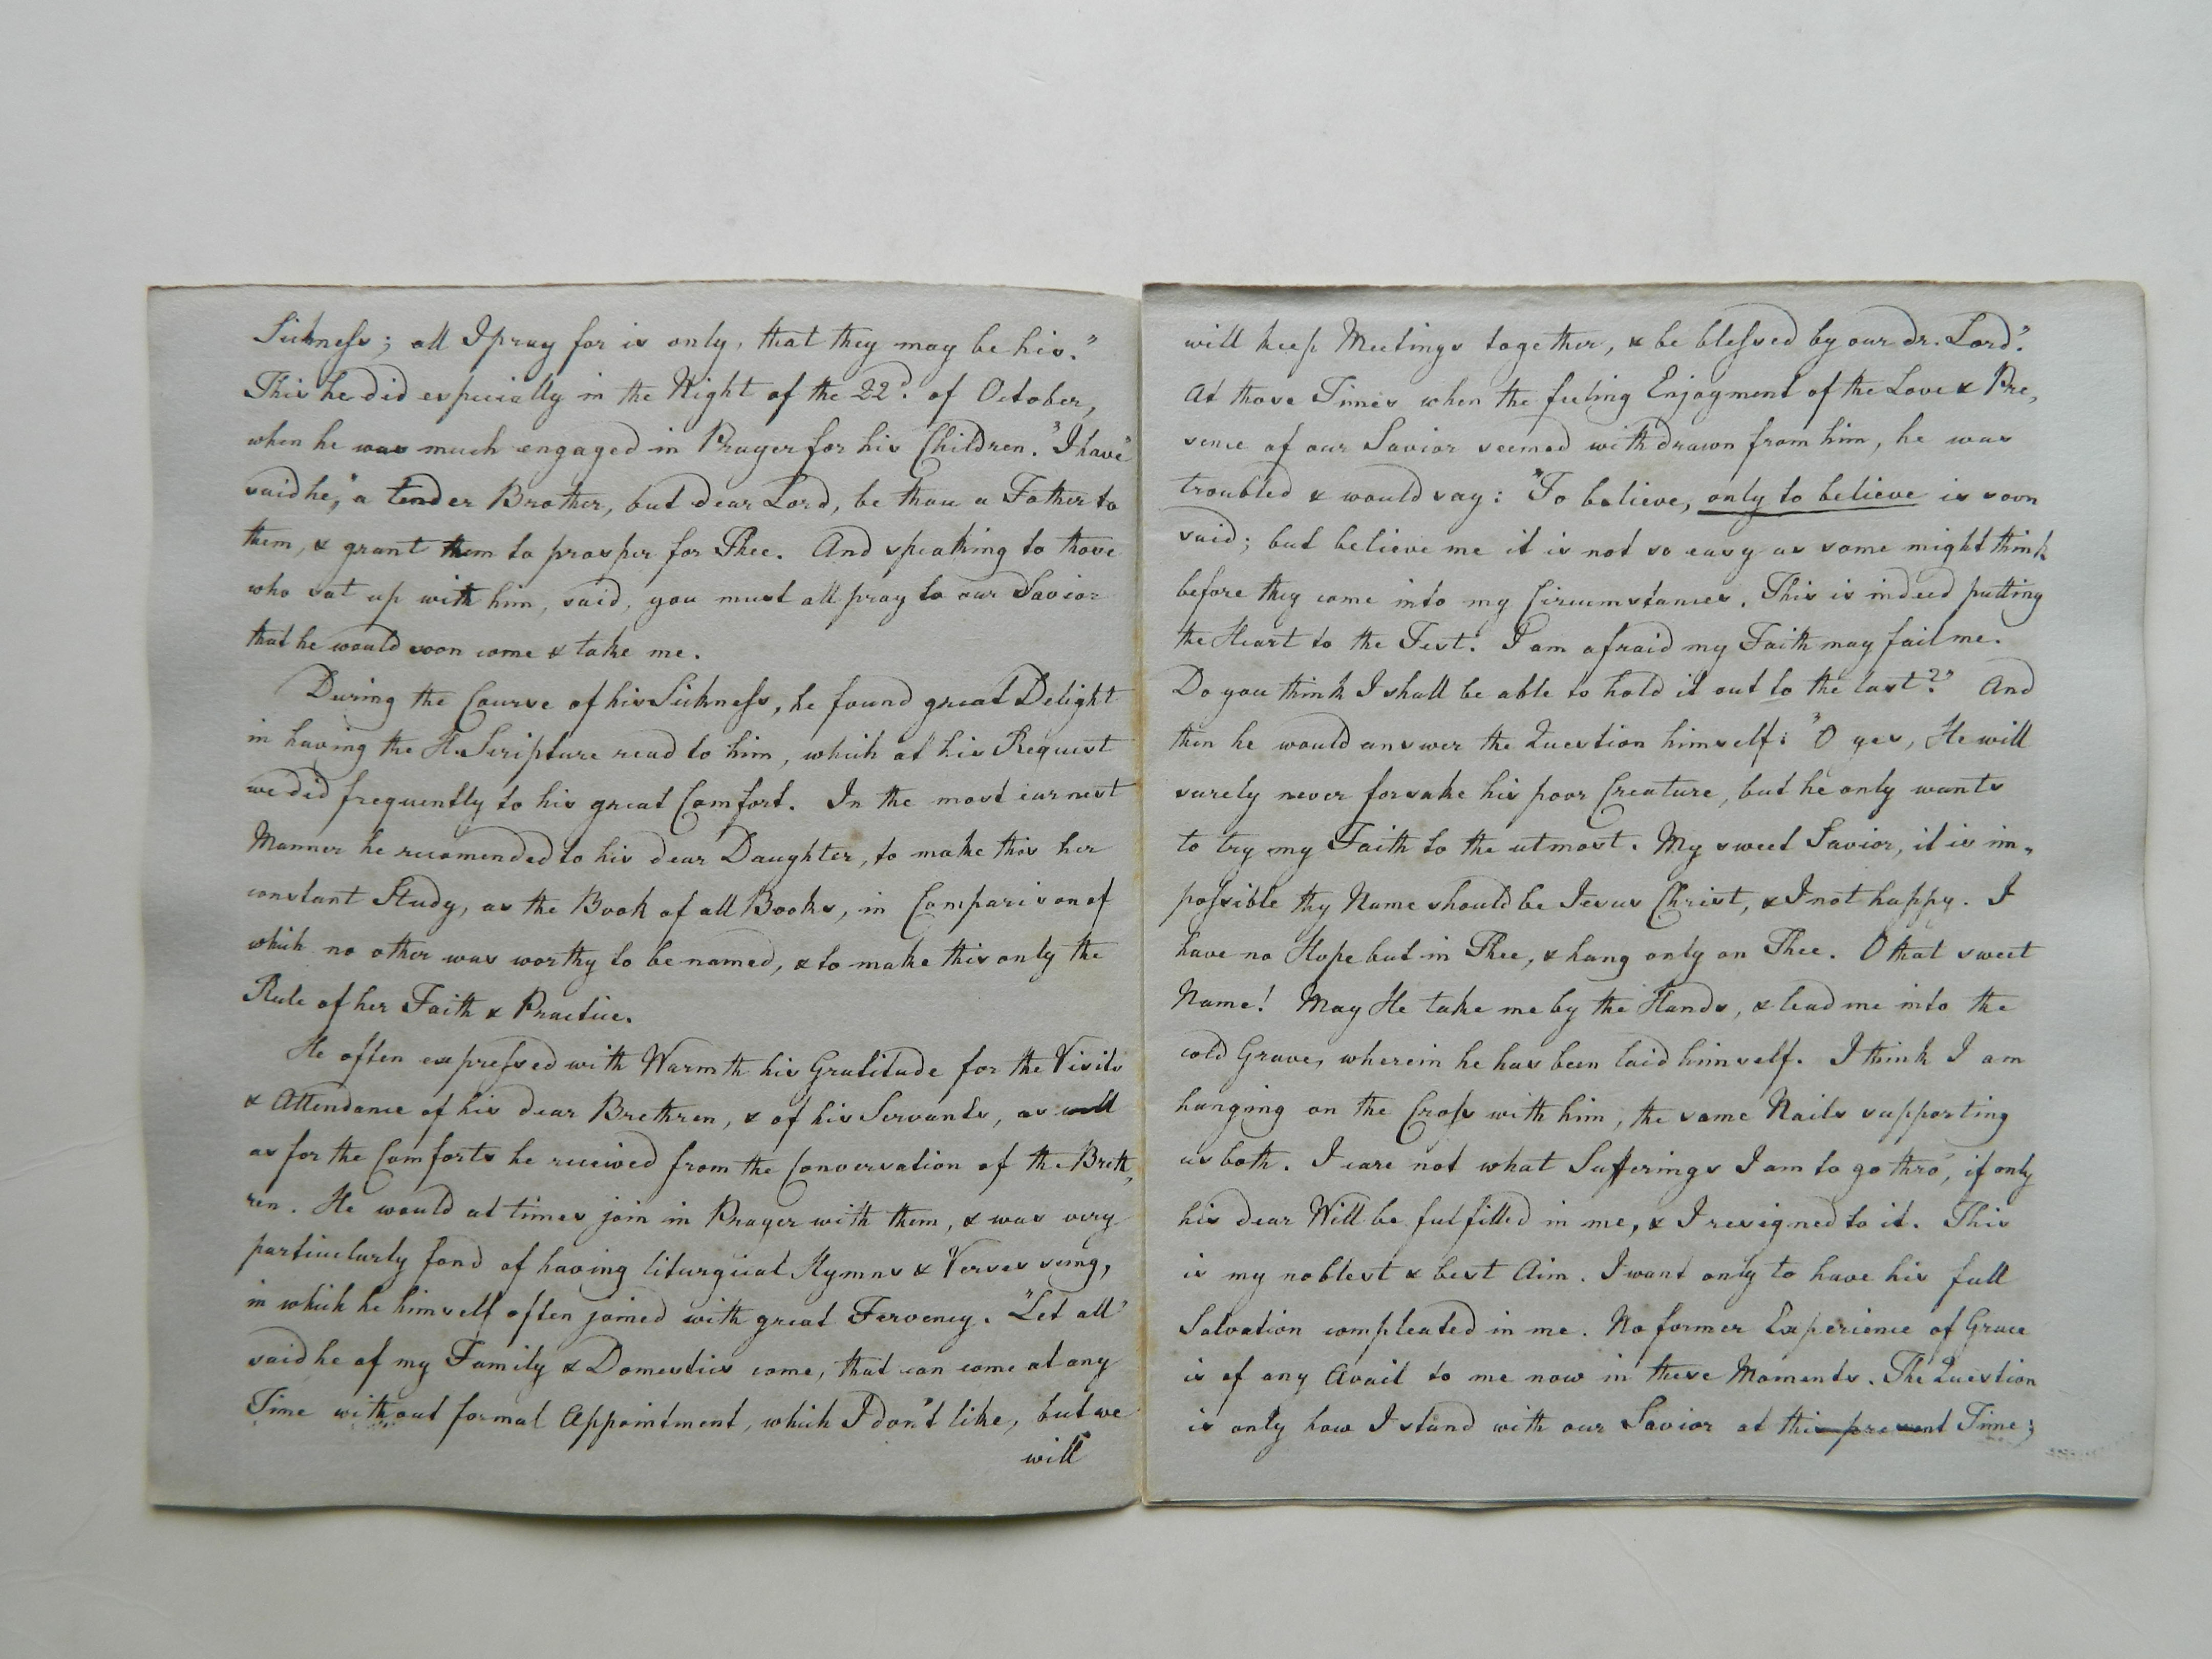 Sickness; all I pray for is only, that they may be his."
This he did especially in the Night of the 22d. of October,
when he was much engaged in Prayer for his Children. "I have"
said he, "a tender Brother, but dear Lord, be thou a Father to
them, & grant them to prosper for Thee. And speaking to those
who sat up with him, said, you must all pray to our Savior
that he would soon come & take me.
During the Course of his Sickness, he found great Delight
in having the H. Scripture read to him, which at his Request
we did frequently to his great Comfort. In the most earnest
Manner he recomended to his dear Daughter, to make this her
constant Study, as the Book of all Books, in Comparison of
which no other was worthy to be named, & to make this only the
Rule of her Faith & Practice.
He often expressed with Warmth his Gratitude for the Visits
& Attendance of his dear Brethren, & of his Servants, as well
as for the Comforts he received from the Conversation of the Breth,
ren. He would at times join in Prayer with them, & was very
particularly fond of having liturgical Hymns & Verses sung,
in which he himself often joined with great Fervency. "Let all"
said he of my Family & Domestics come, that can come at any
Time without formal Appointment, which I don't like, but we
will
will keep Meetings together, & be blessed by our dr. Lord."
At those Times when the feeling Enjoyment of the Love & Pre,
sence of our Savior seemed withdrawn from him, he was
troubled & would say: "To believe, only to believe is soon
said; but believe me it is not so easy as some might think
before they come into my Circumstances. This is indeed putting
the Heart to the Test. I am afraid my Faith may fail me.
Do you think I shall be able to hold it out to the last?" And
then he would answer the Question himself: "O yes, He will
surely never forsake his poor Creature, but he only wants
to try my Faith to the utmost. My sweet Savior, it is im„
possible thy Name should be Jesus Christ, & I not happy. I
have no Hope but in Thee, & hang only on Thee. O that sweet
Name! May He take me by the Hands, & lead me into the
cold Grave, wherein he has been laid himself. I think I am
hanging on the Cross with him, the same Nails supporting
us both. I care not what Sufferings I am to go thro', if only
his dear Will be fulfilled in me, & I resigned to it. This
is my noblest & best Aim. I want only to have his full
Salvation compleated in me. No former Experience of Grace
is of any Avail to me now in these Moments. The Question
is only how I stand with our Savior at this present Time;